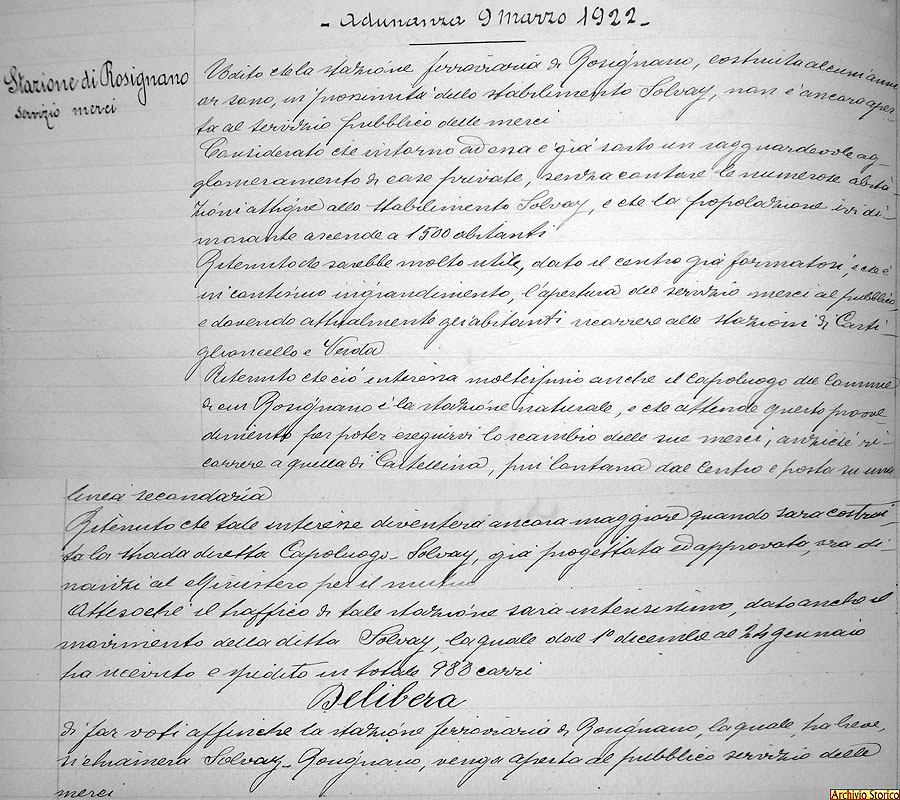 - Adunanza 9 Marzo 1922 -
Stazione di Rosignano
servizio merci
Udito che la stazione ferroviaria di Rosignano, costruita alcuni anni
or sono, in prossimità dello stabilimento Solvay, non è ancora aper-
ta al servizio pubblico delle merci
Considerato che intorno ad essa è già sorto un ragguardevole ag-
glomeramento di case private, senza contare le numerose abita-
zioni attigue allo stabilimento Solvay, e che la popolazione ivi di-
morante ascende a 1500 abitanti
Ritenuto che sarebbe molto utile, dato il centro già formatosi, e che è
in continuo ingrandimento, l'apertura del servizio merci al pubblico,
e dovendo attualmente gli abitanti ricorrere alle stazioni di Casti-
glioncello e Vada
Ritenuto che ciò interessa moltissimo anche il Capoluogo del Comune
di cui Rosignano è la stazione naturale, e che attende questo prove-
dimento per poter eseguirvi lo scambio delle sue merci, anziché ri-
correre a quella di Castellina, più lontana dal centro e posta su una
linea secondaria
Ritenuto che tale interesse diventerà ancora maggiore quando sarà costrui-
ta la strada diretta Capoluogo-Solvay, già progettata ed approvata, ora di-
nanzi al Ministero per il mutuo
Attesoché il traffico di tale stazione sarà intensissimo, dato anche il
movimento della ditta Solvay, la quale dal 1° dicembre al 24 gennaio
ha ricevuto e spedito in totale 983 carri
Delibera
di far voti affinché la stazione ferroviaria di Rosignano, la quale, tra breve,
si chiamerà Solvay-Rosignano, venga aperta al pubblico servizio delle
merci
Archivio Storico